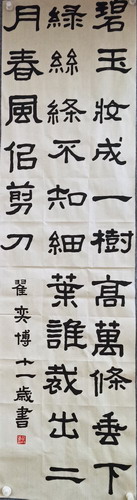 碧玉妝成一樹高萬條垂下
綠絲絛不知細葉誰裁出二
月春風佀剪刀
翟奕博十一歲書